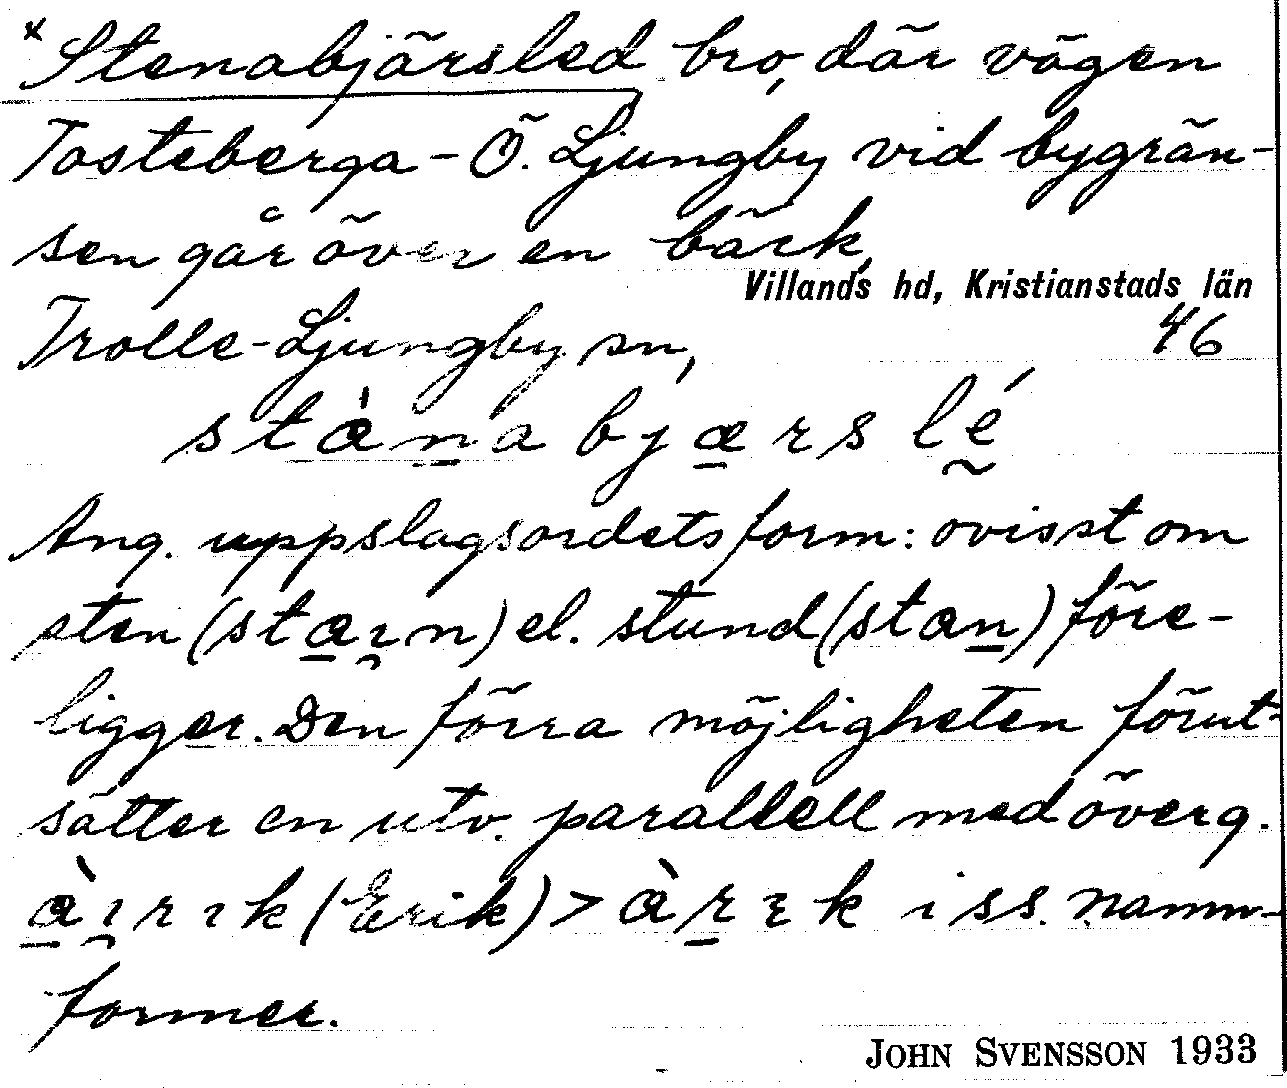 *Stenabjärsled bro, där vägen
Tosteberga - Ö. Ljungby vid bygrän-
sen går över en bäck,
Villands hd, Kristianstads län
Trolle-Ljungby sn, 46
stæ̀nabjærslé
Ang. uppslagsordets form: ovisst om
sten (stæɪn) el. stund (stan) före-
ligger. Den förra möjligheten förut-
sätter en utv. parallell med överg.
æ̀ɪrɪk (Erik) > àrɪk i ss. namn-
former.
JOHN SVENSSON 1933